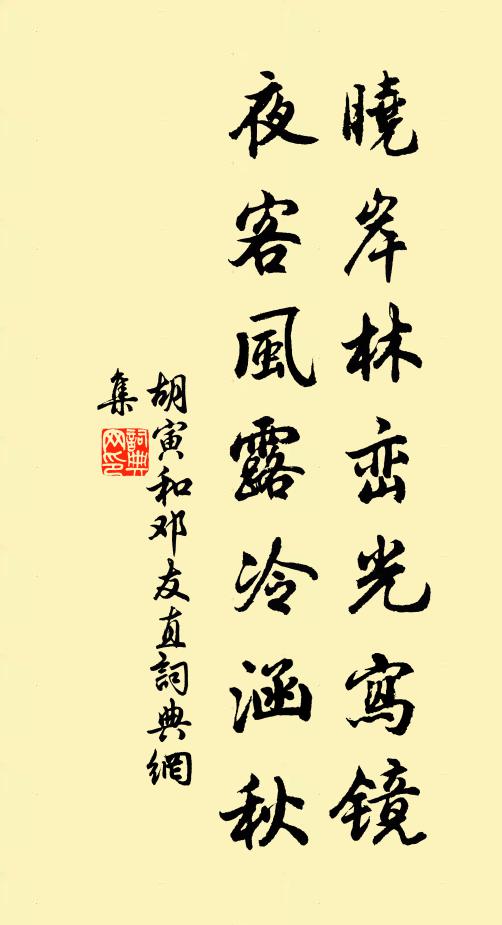 曉岸林峦光寫镜
夜客風露冷涵秋
胡寅和邓友直詞典網
集
詞典
网印